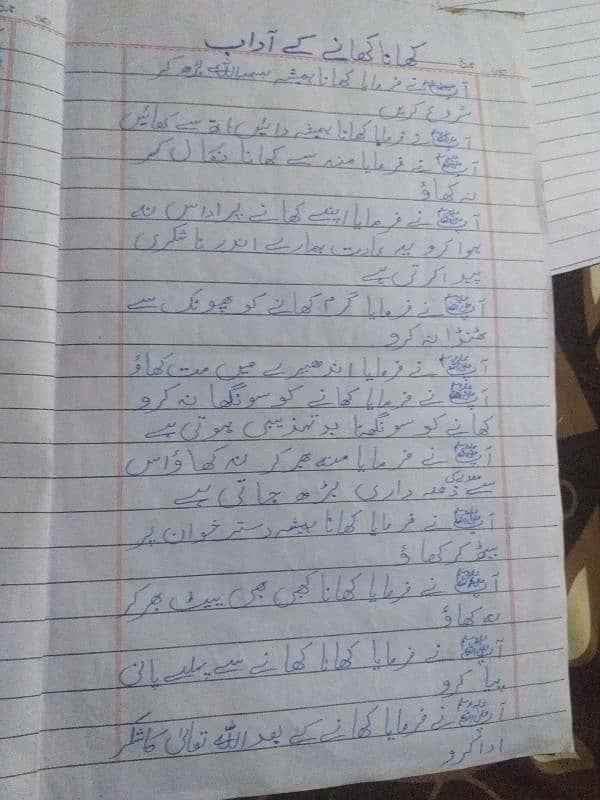 کھانا کھانے کے آداب
آپﷺ نے فرمایا کھانا ہمیشہ بسم اللہ پڑھ کر
شروع کریں
آپﷺ نے فرمایا کھانا ہمیشہ دائیں ہاتھ سے کھائیں
آپﷺ نے فرمایا منہ سے کھانا نکال کر
نہ کھاؤ
آپﷺ نے فرمایا اپنے کھانے پر اداس نہ
ہوا کرو یہ عادت ہمارے اندر ناشکری
پیدا کرتی ہے
آپﷺ نے فرمایا گرم کھانے کو پھونک سے
ٹھنڈا نہ کرو
آپﷺ نے فرمایا اندھیرے میں مت کھاؤ
آپﷺ نے فرمایا کھانے کو سونگھا نہ کرو
کھانے کو سونگھنا بدتہذیبی ہوتی ہے
آپﷺ نے فرمایا منہ بھر کر نہ کھاؤ اس
سے معدے کی ذمہ داری بڑھ جاتی ہے
آپﷺ نے فرمایا کھانا ہمیشہ دستر خوان پر
بیٹھ کر کھاؤ
آپﷺ نے فرمایا کھانا کبھی بھی پیٹ بھر کر
نہ کھاؤ
آپﷺ نے فرمایا کھانا کھانے سے پہلے پانی
پیا کرو
آپﷺ نے فرمایا کھانے کے بعد اللہ تعالیٰ کا شکر
ادا کرو